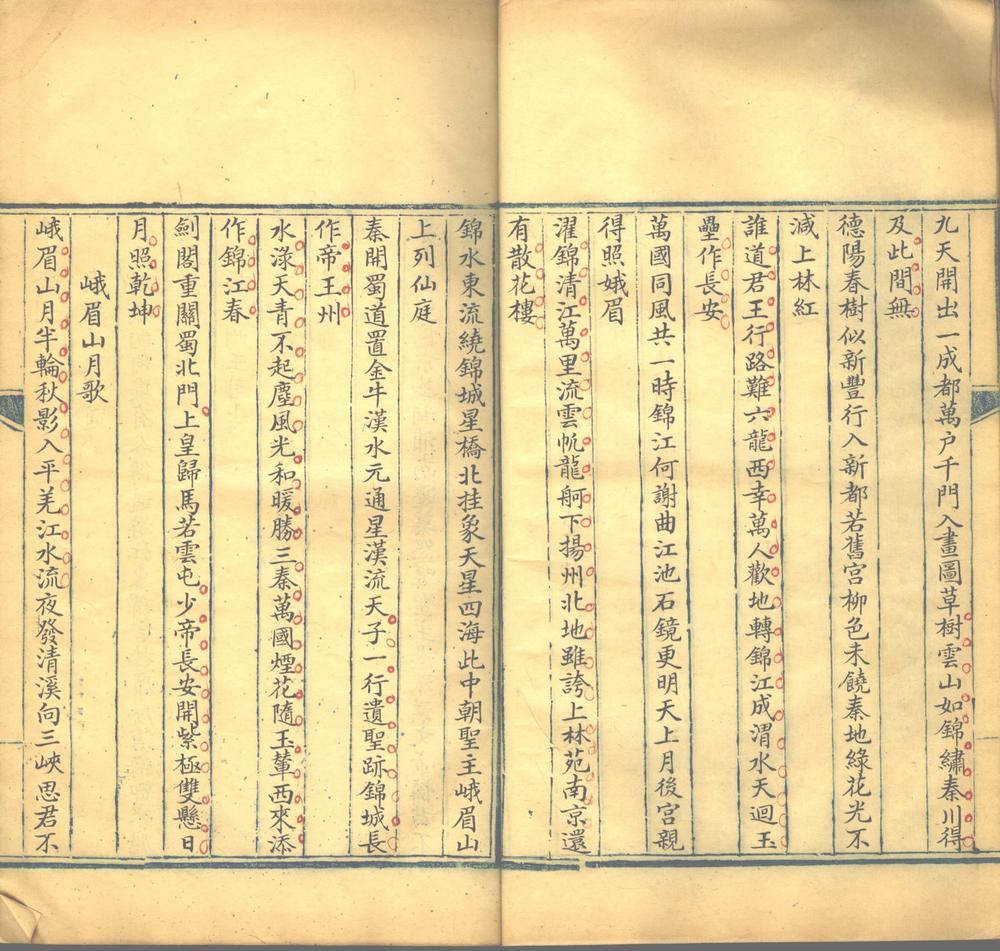 九天開出一成都萬户千門入畫圖草樹雲山如錦繡秦川得
及此間無
德陽春樹似新豐行入新都若舊宫柳色未饒秦地綠花光不
減上林紅
誰道君王行路難六龍西幸萬人歡地轉錦江成渭水天迴玉
壘作長安
萬國同風共一時錦江何謝曲江池石鏡更明天上月後宫親
得照娥眉
濯錦清江萬里流雲帆龍舸下揚州北地雖誇上林苑南京還
有散花樓
錦水東流繞錦城星橋北挂象天星四海此中朝聖主峨眉山
上列仙庭
秦開蜀道置金牛漢水元通星漢流天子一行遺聖跡錦城長
作帝王州
水渌天青不起塵風光和暖勝三秦萬國煙花隨玉輦西來添
作錦江春
劍閣重關蜀北門上皇歸馬若雲屯少帝長安開紫極雙懸日
月照乾坤
峨眉山月歌
峨眉山月半輪秋影入平羌江水流夜發清溪向三峽思君不